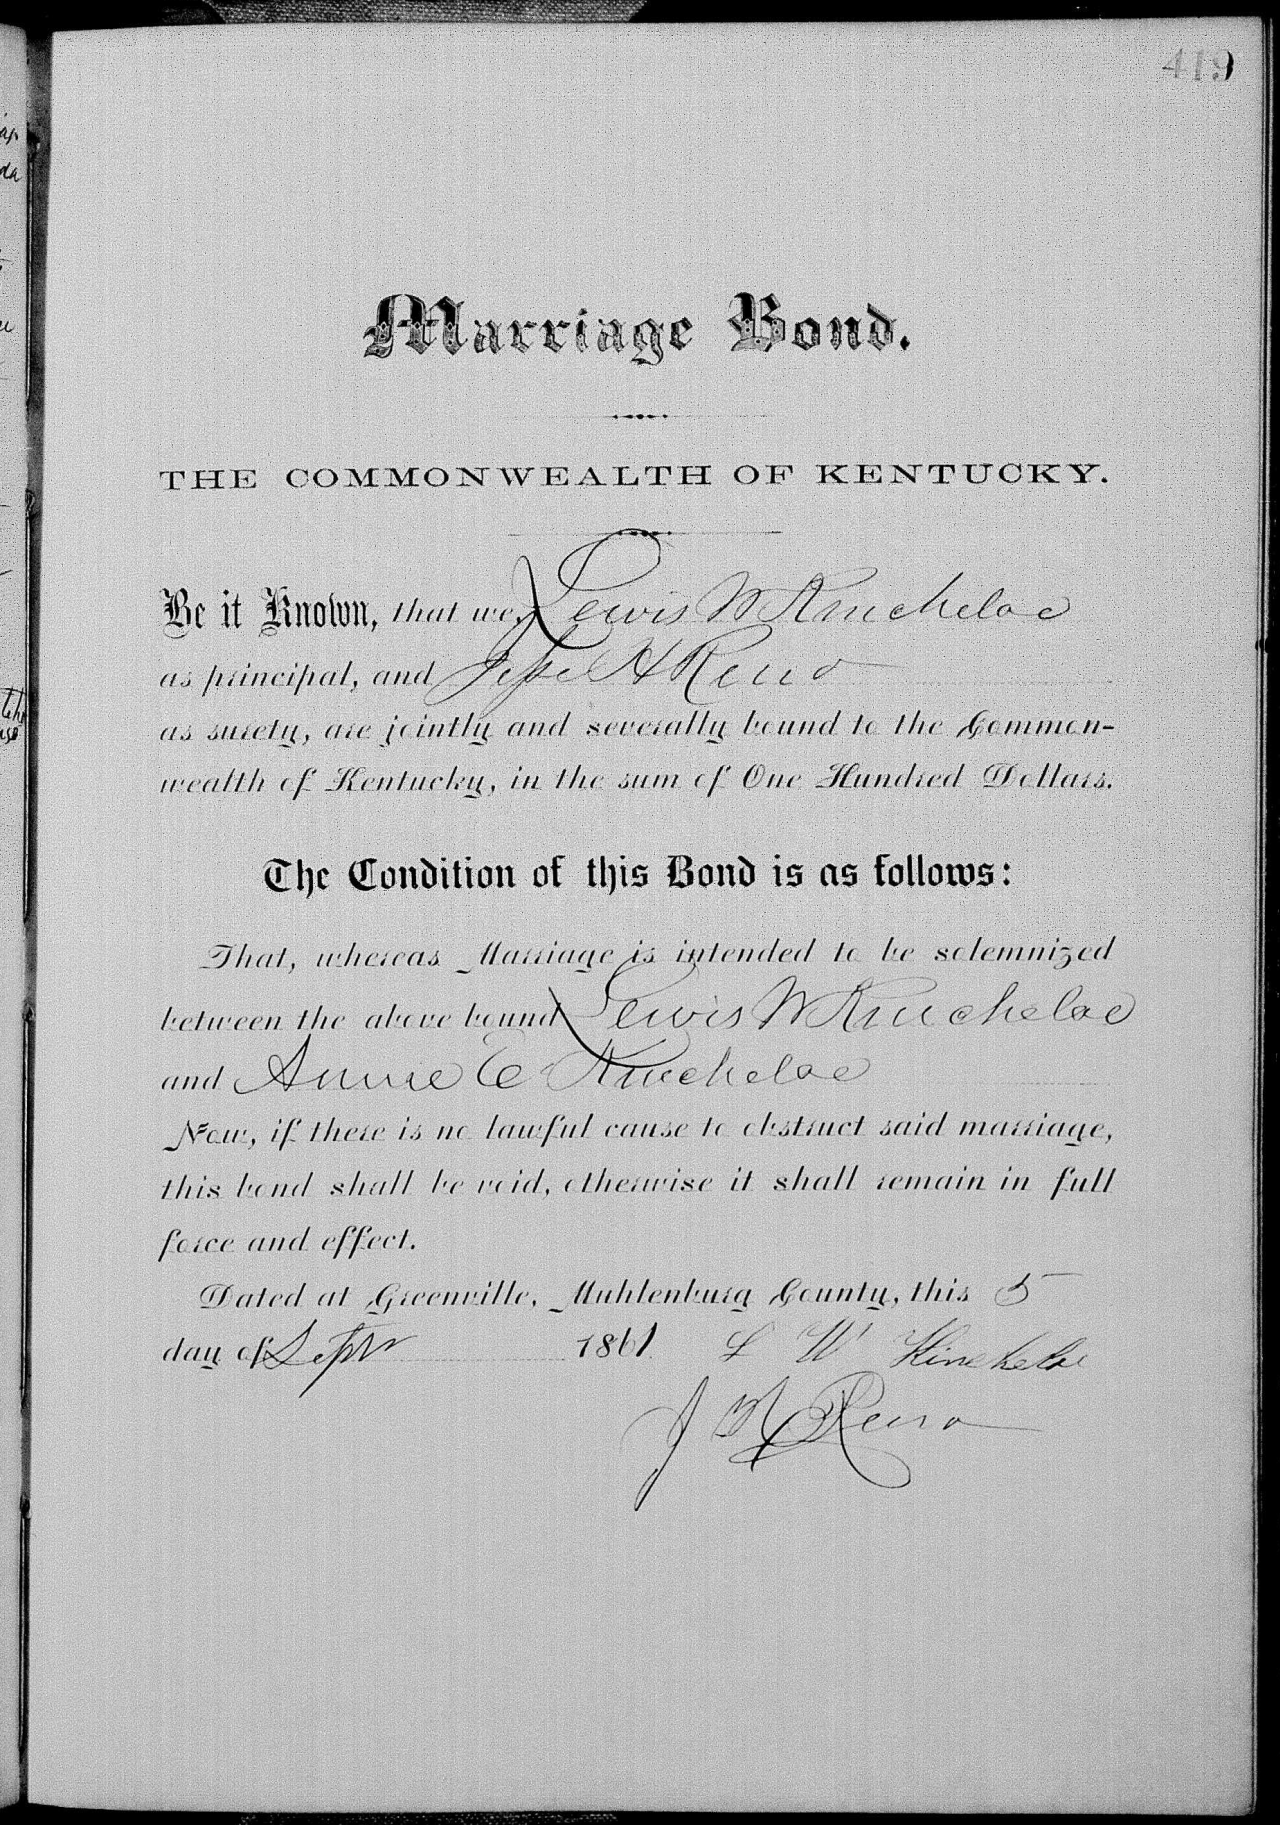 419
Marriage Bond.
THE COMMONWEALTH OF KENTUCKY.
Be it Known, that we, Lewis W Kincheloe
as principal, and Jesse H Reno
as surety, are jointly and severally bound to the Common-
wealth of Kentucky, in the sum of One Hundred Dollars.
The Condition of this Bond is as follows:
That, whereas Marriage is intended to be solemnized
between the above bound Lewis W Kincheloe
and Annie E Kincheloe
Now, if there is no lawful cause to obstruct said marriage,
this bond shall be void, otherwise it shall remain in full
force and effect.
Dated at Greenville, Muhlenburg County, this 5
day of Septr 1861 L W Kincheloe
J H Reno